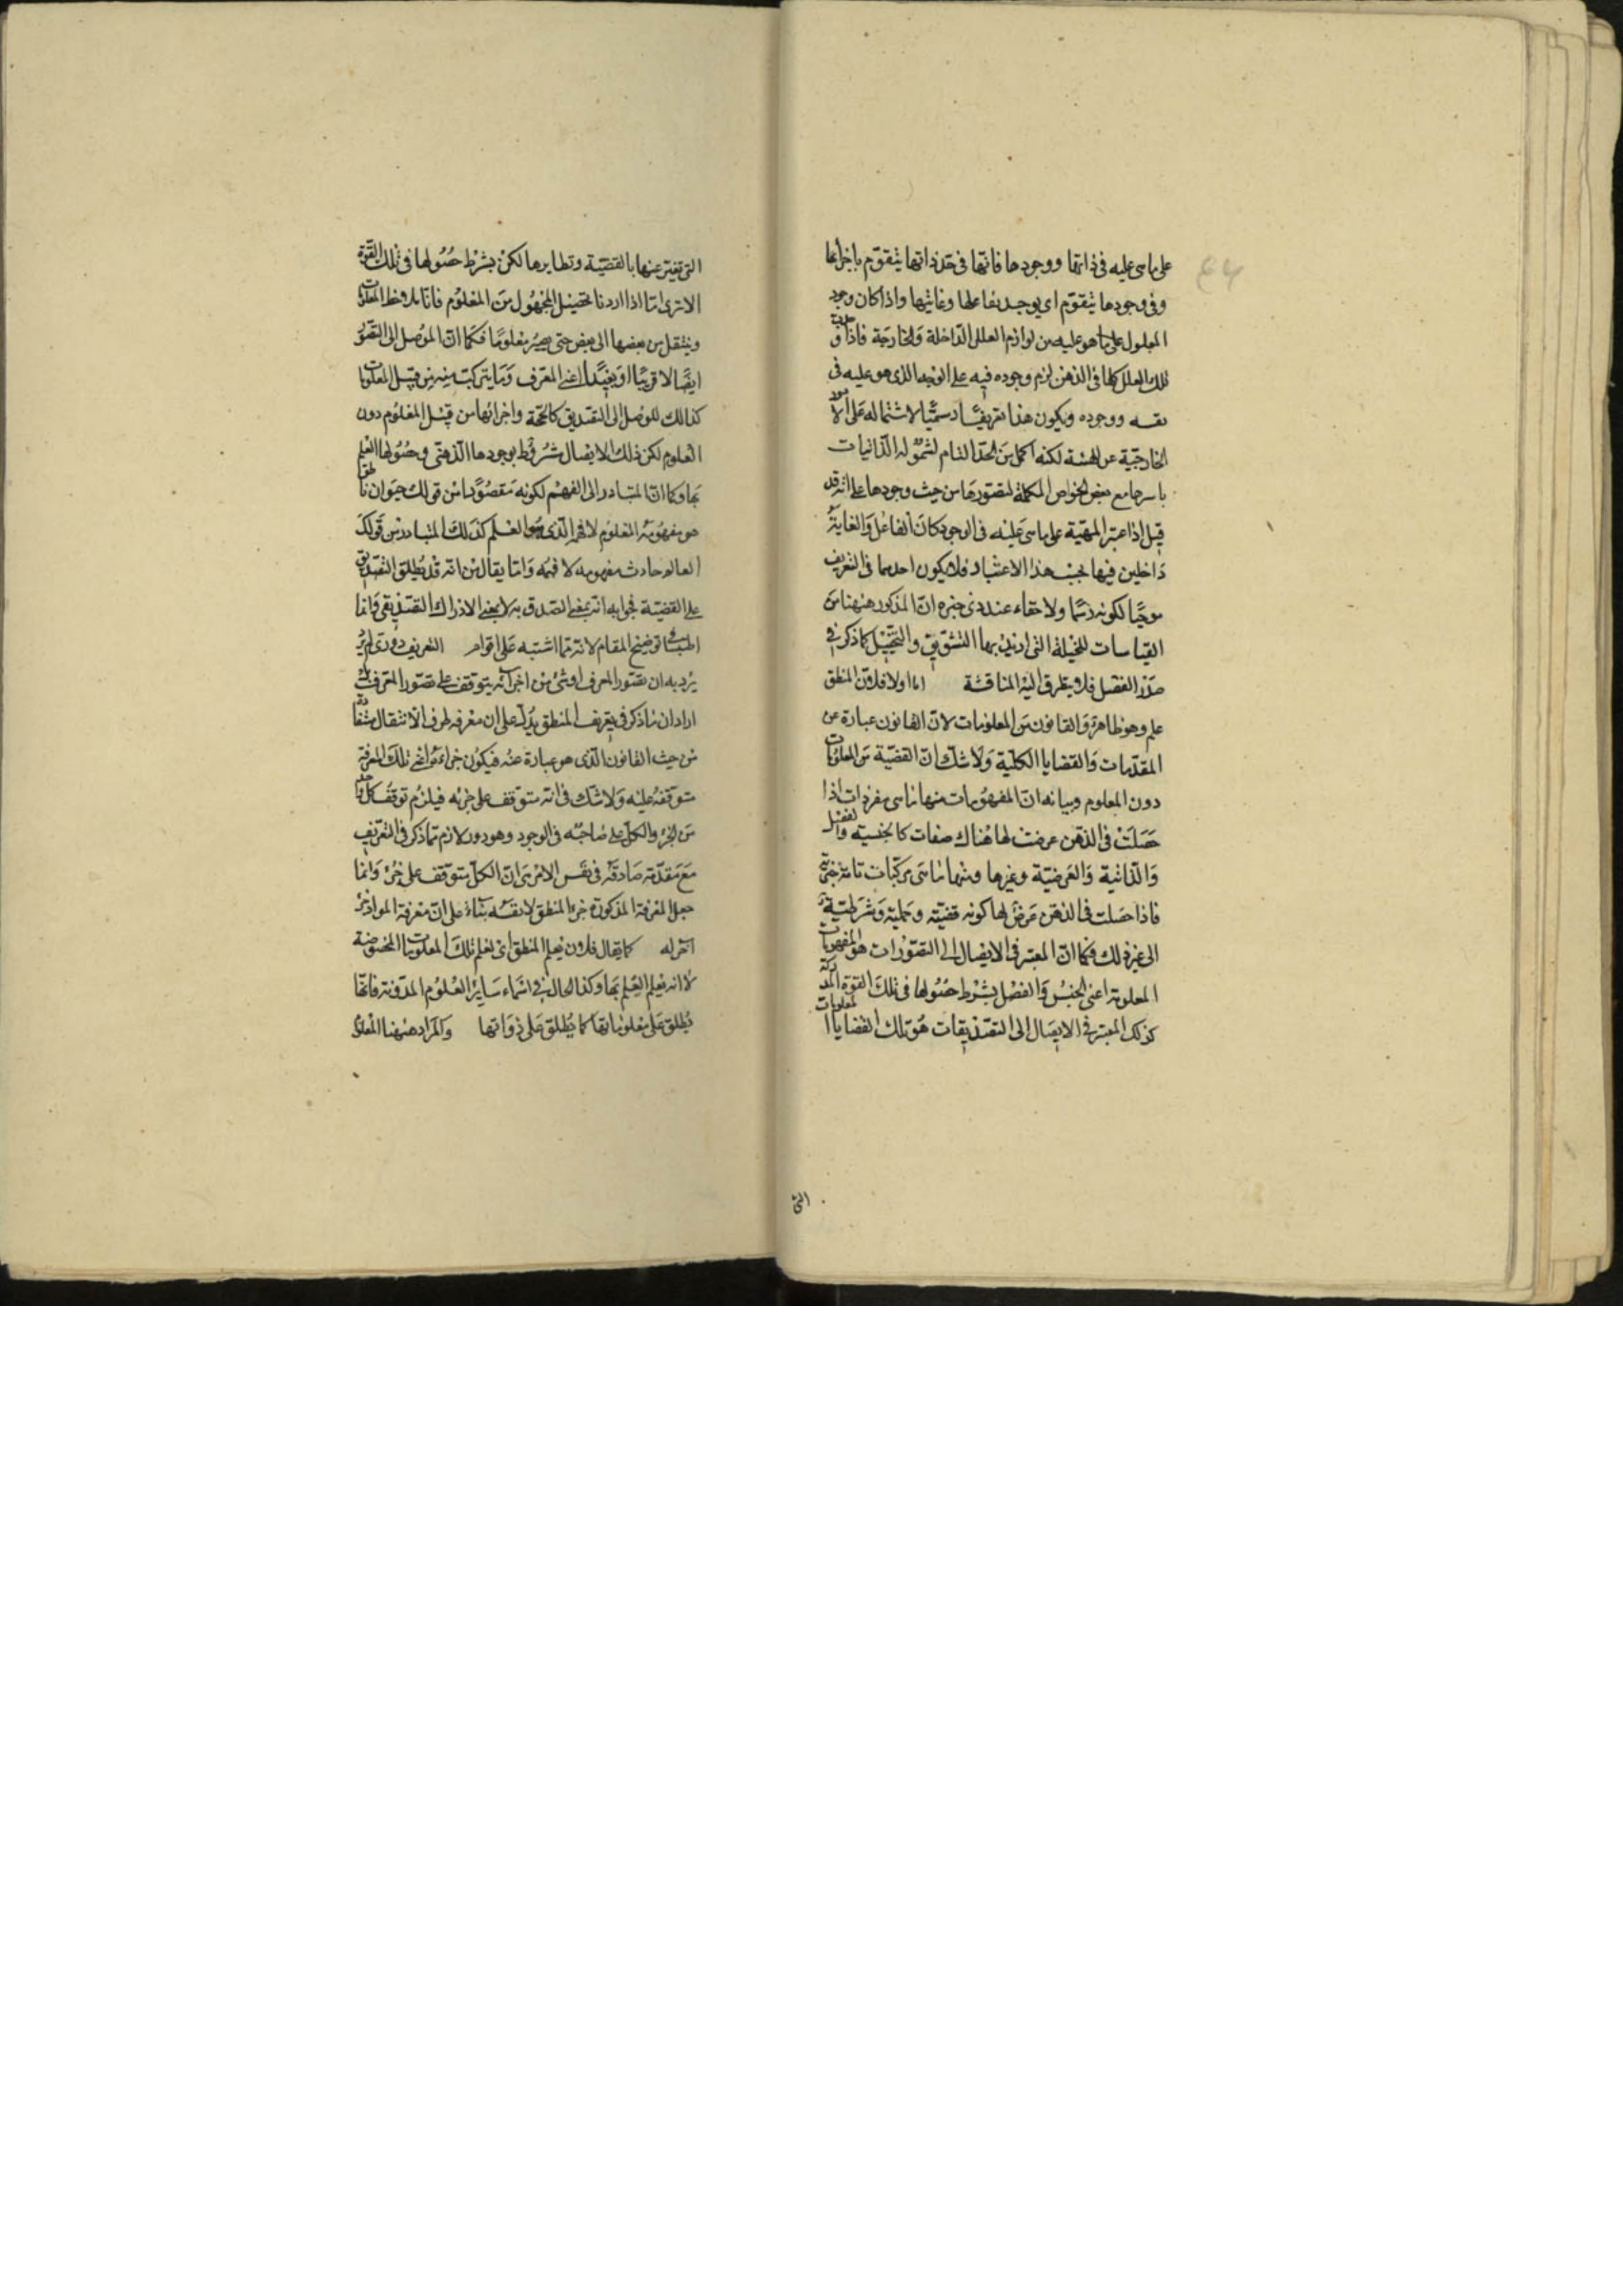 على ما هى عليه فى ذاتها ووجودها فانها فى حد ذاتها يتقوم باجزائها
وفى وجودها يتقوم اى يوجد بفاعلها وغايتها واذا كان وجود
المعلول على ما هو عليه من لوازم العلل الداخلة والخارجة فاذا
تلك العلل كلها فى الذهن لزم وجوده فيه على الوجه الذى هو عليه فى
نفسه ووجوده ويكون هذا تعريفا رسميا لاشتماله على الامور
الخارجية عن المهية لكنه اكمل من الحد التام لشموله الذاتيات
باسرها مع بعض الخواص المكملة لتصورها من حيث وجودها على انه قد
قيل اذا اعتبر المهية على ما هى عليه فى الوجود كان الفاعل والغاية
داخلين فيها بحسب هذا الاعتبار فلا يكون احدهما فى التعريف
موجبا لكونه رسما ولا خفاء عند ذى خبرة ان المذكور ههنا من
القياسات المخيلة التى اريد بها التشويق والتخييل كما ذكر فى
صدر الفصل فلا يتطرق اليه المناقشة اما اولا فلان المنطق
علم وهو ظاهر والقانون من المعلومات لان القانون عبارة عن
المقدمات والقضايا الكلية ولا شك ان القضية من المعلومات
دون المعلوم وبيانه ان المفهومات منها ما هى مفردات اذا
حصلت فى الذهن عرضت لها هناك صفات كالجنسية والفصل
والذاتية والعرضية وغيرها ومنها ما هى مركبات تامة خبرية
فاذا حصلت فى الذهن عرض لها كونه قضية وحملية وشرطية
الى غير ذلك فكما ان المعتبر فى الايصال الى التصورات هو المفهومات
المعلومة اعنى الجنس والفصل بشرط حصولها فى تلك القوة المدركة
كذلك المعتبر فى الايصال الى التصديقات هو تلك القضايا المعلومات
التى
التى تعبر عنها بالقضية ونظايرها لكن بشرط حصولها فى تلك القوة
الا ترى انا اذا اردنا تحصيل المجهول من المعلوم فانا نلاحظ المعلومات
وينتقل من بعضها الى بعض حتى يصير معلوما فكما ان الموصل الى التصور
ايصالا قريبا او بعيدا اعنى المعرف وما يتركب منه من قبيل المعلومات
كذلك الموصل الى التصديق كالحجة واجزائها من قبيل المعلوم دون
العلوم لكن ذلك الايصال مشروط بوجودها الذهنى وحصولها العلم
بها وكما ان المتبادر الى الفهم لكونه مقصودا من قولك حيوان ناطق
هو مفهومه المعلوم لا فهمه الذى هو العلم كذلك المتبادر من قولك
العالم حادث مفهومه لا فهمه واما يقال من انه قد يطلق التصديق
على القضية فجوابه انه بمعنى المصدق به لا بمعنى الادراك التصديقى وانما
اطنبنا فى توضيح المقام لانه مما اشتبه على اقوام التعريف دورى لم يرد
يرد به ان تصور المعرف او شئ من اجزائه يتوقف على تصور المعرف بل
اراد ان ما ذكر فى تعريف المنطق يدل على ان معرفة طرق الانتقال مستفادة
من حيث القانون الذى هو عبارة عنه فيكون جزاءه اعنى تلك المعرفة
متوقفة عليه ولا شك فى انه متوقف على جزئه فيلزم توقف كل واحد
من الجزء والكل على صاحبه فى الوجود وهو دور لازم مما ذكر فى التعريف
مع مقدمة صادقة فى نفس الامر هى ان الكل متوقف على جزئه وانما
جعل المعرفة المذكورة جزء المنطق لا نفسه بناء على ان معرفة المواد جزء
آخر له كما يقال فلان يعلم المنطق اى يعلم تلك المعلومات المخصوصة
لا انه يعلم العلم بها وكذا الحال فى اسماء ساير العلوم المدونة فانها
يطلق على معلوماتها كما يطلق على ذواتها والمراد ههنا المعلوم